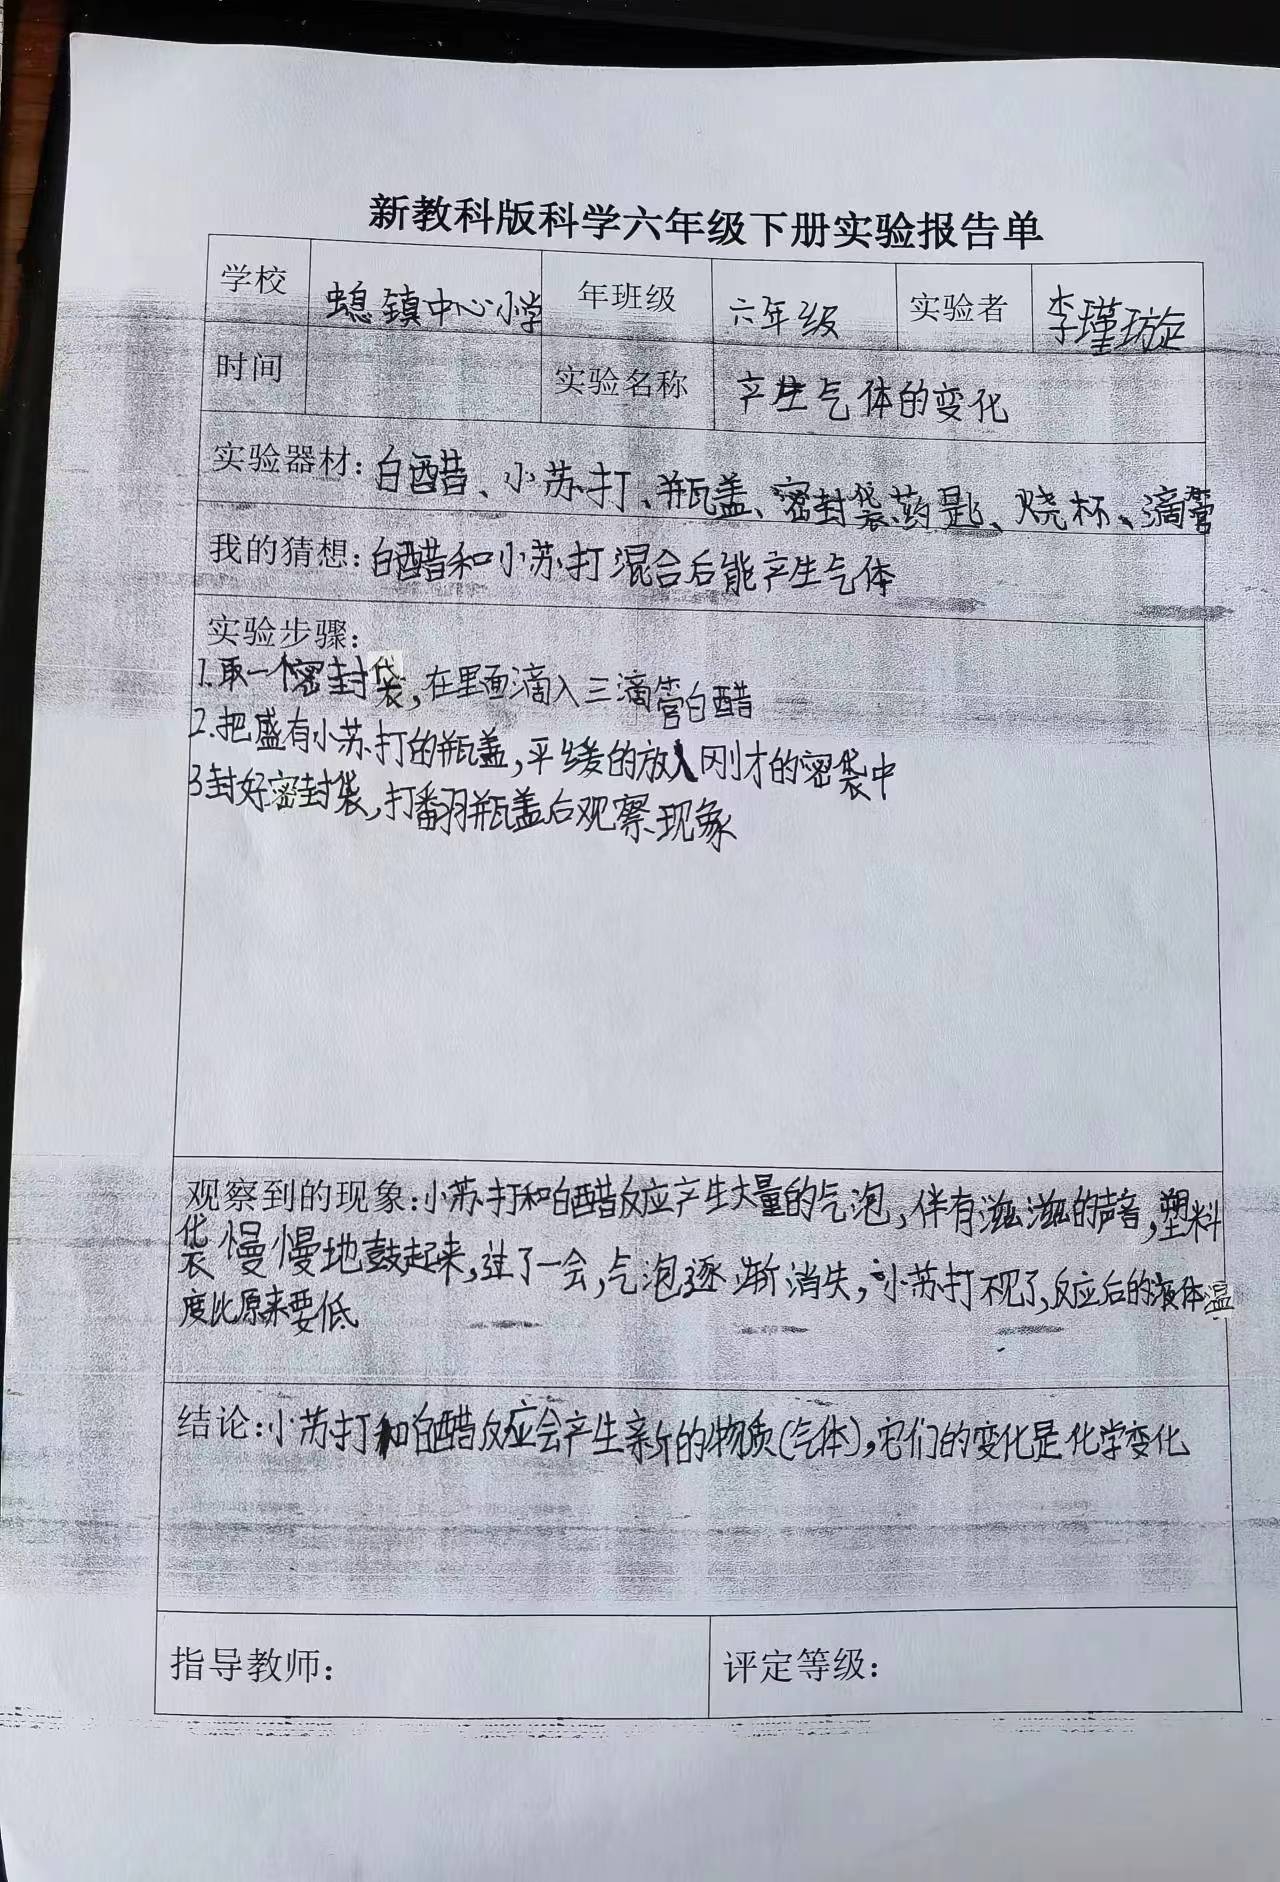 新教科版科学六年级下册实验报告单
学校 螅镇中心小学 年班级 六年级 实验者 李瑾璇
时间 实验名称 产生气体的变化
实验器材:白醋、小苏打、瓶盖、密封袋药匙、烧杯、滴管
我的猜想:白醋和小苏打混合后能产生气体
实验步骤:
1.取一个密封袋,在里面滴入三滴管白醋
2.把盛有小苏打的瓶盖,平缓的放入刚才的密袋中
3封好密封袋,打翻瓶盖后观察现象
观察到的现象:小苏打和白醋反应产生大量的气泡,伴有滋滋的声音,塑料
袋慢慢地鼓起来,过了一会,气泡逐渐消失,小苏打不见了,反应后的液体温
度比原来要低
结论:小苏打和白醋反应会产生新的物质(气体),它们的变化是化学变化
指导教师: 评定等级: